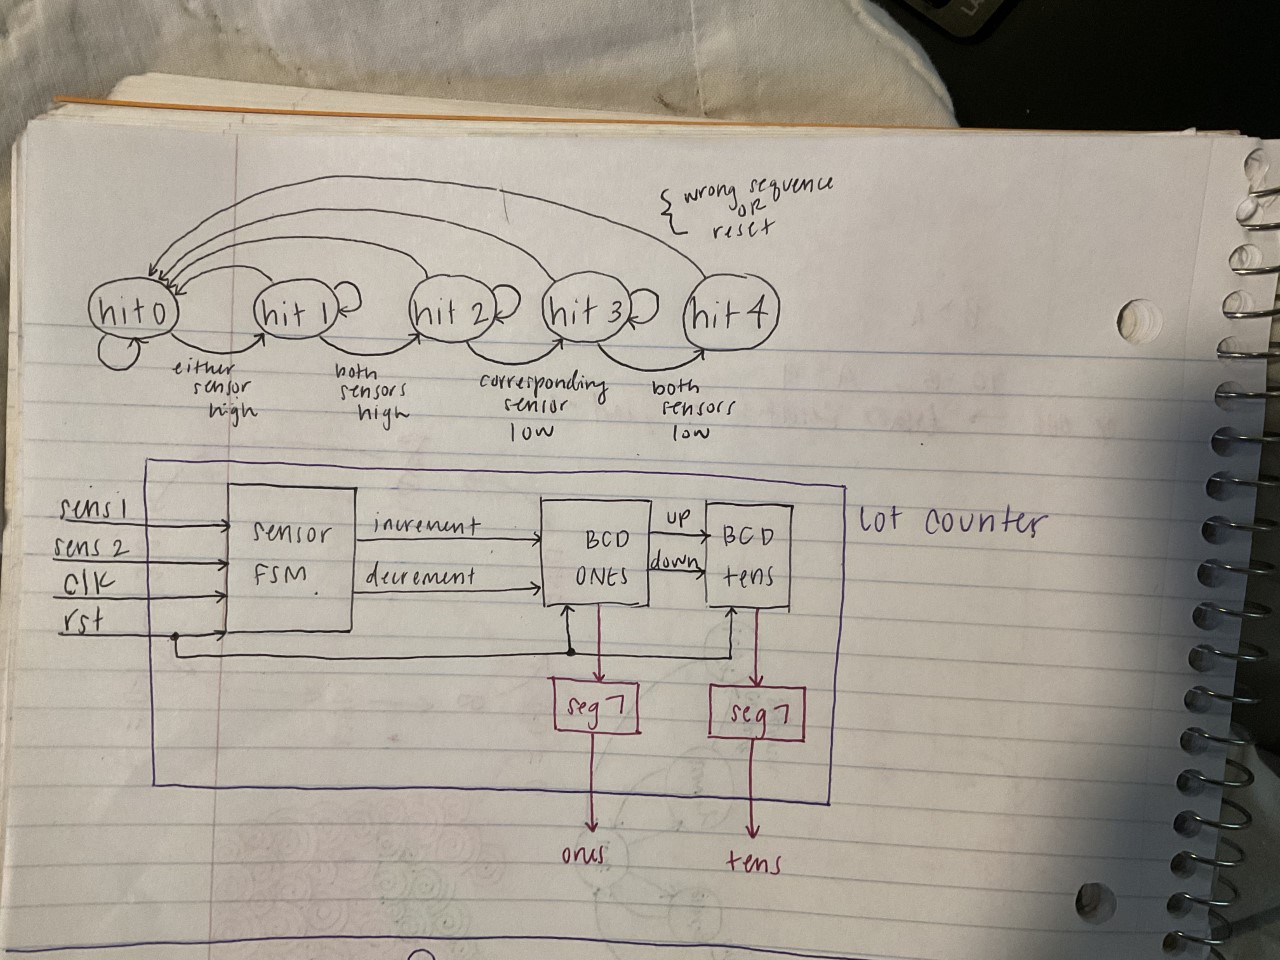 { wrong sequence
OR
reset
hit 0
hit 1
hit 2
hit 3
hit 4
either
sensor
high
both
sensors
high
corresponding
sensor
low
both
sensors
low
lot counter
sens1
sens 2
clk
rst
sensor
FSM
increment
decrement
BCD
ONES
up
down
BCD
tens
seg 7
seg 7
ones
tens